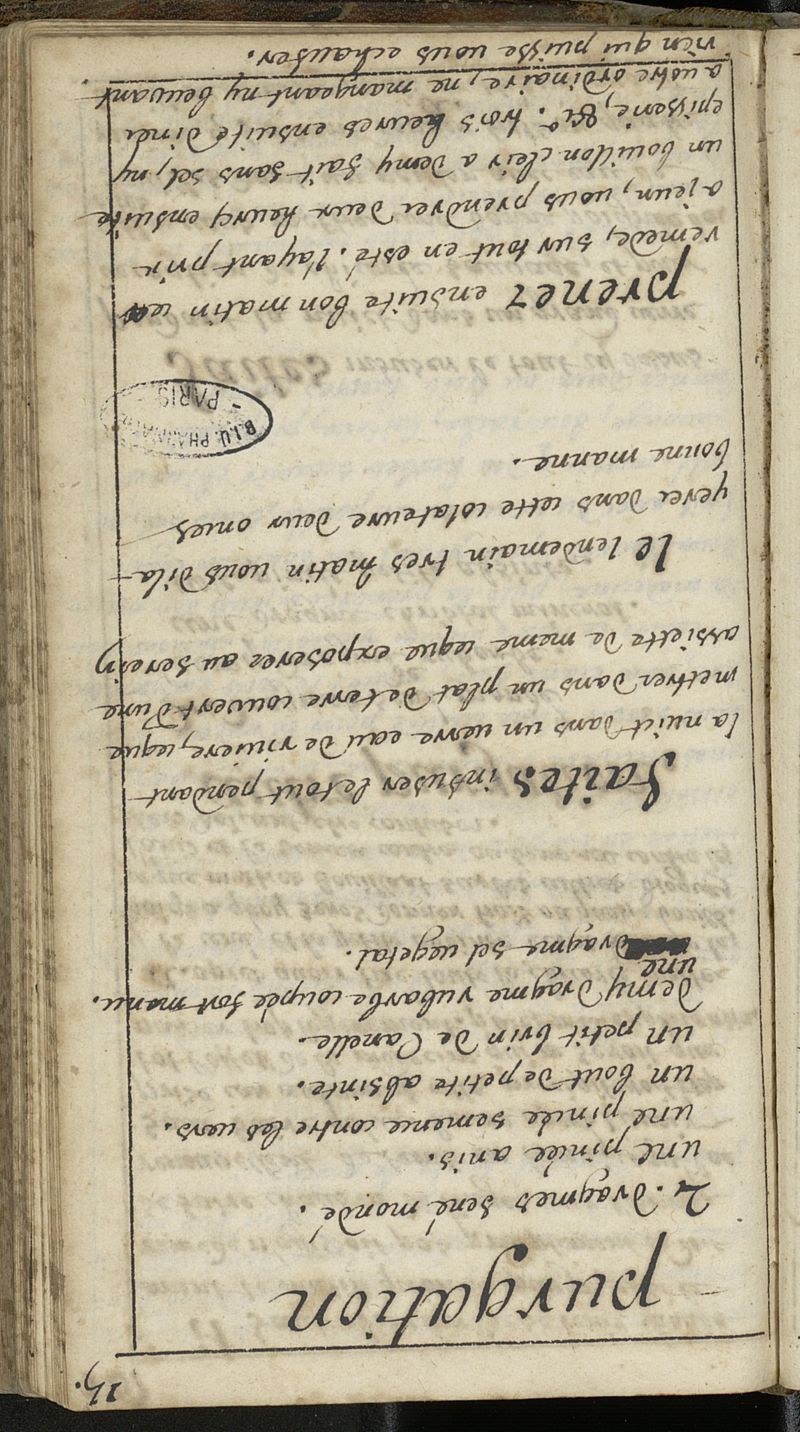 purgation
2. dragmes sené mondé.
une pincée anis.
une pincée semence contre les vers.
un bout de petite absinte.
un petit brin de Canelle.
demy dragme rubarbe coupée fort menu.
une dragme sel vegetal.
faites infuser le tout pendant
la nuict dans un verre eau de riviere, ceque
mettrez dans un plat de terre couvert d'une
assiette de meme ceque exposerez au serein
le lendemain tres matin vous dila-
yerez dans cette colateure deux onces
bonne manne.
B.I.U. PHARMACIE
- PARIS -
prenez ensuite bon matin ce
remede, sur tout en esté. l'ayant pris
a jeun, vous prendrez deux heures ensuite
un bouillon clair a demy fait sans sel, ny
episserie, &c.ª trois heures ensuite dinez
a vostre ordinaire, ne mangeant ny beuvant
rien qui puisse vous echaufer.